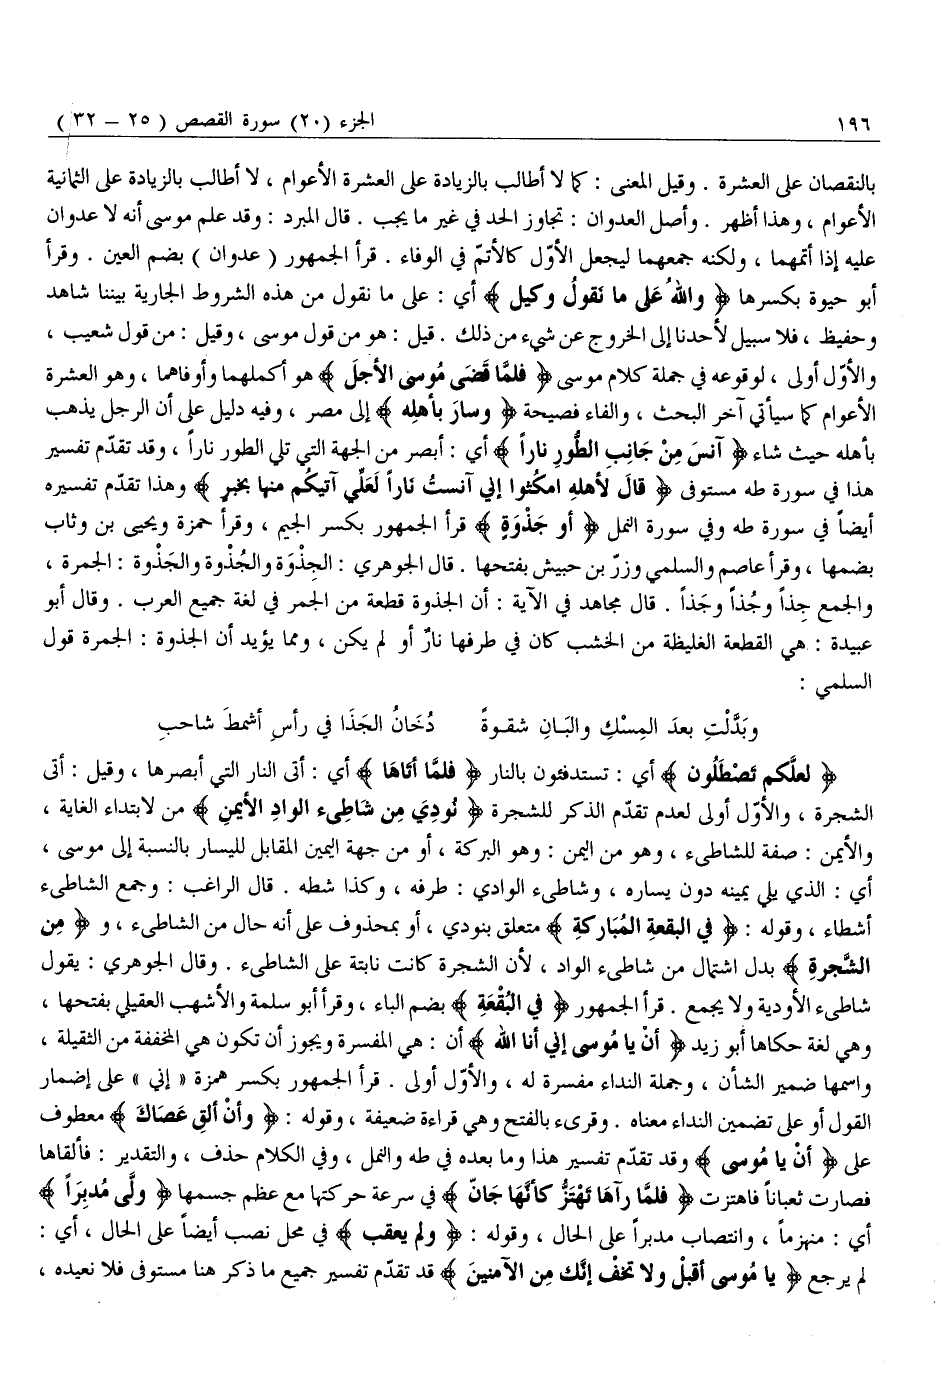 ١٩٦ الجزء (٢٠) سورة القصص ( ٢٥ – ٣٢ )
بالنقصان على العشرة . وقيل المعنى : كما لا أطالب بالزيادة على العشرة الأعوام ، لا أطالب بالزيادة على الثمانية
الأعوام ، وهذا أظهر . وأصل العدوان : تجاوز الحد في غير ما يجب . قال المبرد : وقد علم موسى أنه لا عدوان
عليه إذا أتمهما ، ولكنه جمعهما ليجعل الأوّل كالأتمّ في الوفاء . قرأ الجمهور ( عدوان ) بضم العين . وقرأ
أبو حيوة بكسرها ﴿ واللهُ على ما نَقولُ وكيل ﴾ أي : على ما نقول من هذه الشروط الجارية بيننا شاهد
وحفيظ ، فلا سبيل لأحدنا إلى الخروج عن شيء من ذلك . قيل : هو من قول موسى ، وقيل : من قول شعيب ،
والأوّل أولى ، لوقوعه في جملة كلام موسى ﴿ فلمَّا قَضَى مُوسى الأجلَ ﴾ هو أكملهما وأوفاهما ، وهو العشرة
الأعوام كما سيأتي آخر البحث ، والفاء فصيحة ﴿ وسارَ بأهلِه ﴾ إلى مصر ، وفيه دليل على أن الرجل يذهب
بأهله حيث شاء ﴿ آنسَ مِنْ جَانِبِ الطُّورِ ناراً ﴾ أي : أبصر من الجهة التي تلي الطور ناراً ، وقد تقدّم تفسير
هذا في سورة طه مستوفى ﴿ قالَ لأهلهِ امكُثوا إني آنستُ نَاراً لَعَلِّي آتيكُم منها بخبرٍ ﴾ وهذا تقدّم تفسيره
أيضاً في سورة طه وفي سورة النمل ﴿ أو جَذْوَةٍ ﴾ قرأ الجمهور بكسر الجيم ، وقرأ حمزة ويحيى بن وثاب
بضمها ، وقرأ عاصم والسلمي وزرّ بن حبيش بفتحها . قال الجوهري : الجِذْوَة والجُذْوة والجَذْوة : الجمرة ،
والجمع جِذاً وجُذاً وجَذاً . قال مجاهد في الآية : أن الجذوة قطعة من الجمر في لغة جميع العرب . وقال أبو
عبيدة : هي القطعة الغليظة من الخشب كان في طرفها نارٌ أو لم يكن ، ومما يؤيد أن الجذوة : الجمرة قول
السلمي :
وبَدَّلْتِ بعدَ المِسْكِ والبَانِ شقـوةً دُخَانُ الجَذَا في رأسِ أشمطَ شاحبِ
﴿ لعلَّكم تَصْطَلُون ﴾ أي : تستدفئون بالنار ﴿ فلمَّا أتَاهَا ﴾ أي : أتى النار التي أبصرها ، وقيل : أتى
الشجرة ، والأوّل أولى لعدم تقدّم الذكر للشجرة ﴿ نُودِيَ مِن شَاطِىء الوادِ الأيمنِ ﴾ من لابتداء الغاية ،
والأيمن : صفة للشاطىء ، وهو من اليمن : وهو البركة ، أو من جهة اليمين المقابل لليسار بالنسبة إلى موسى ،
أي : الذي يلي يمينه دون يساره ، وشاطىء الوادي : طرفه ، وكذا شطه . قال الراغب : وجمع الشاطىء
أشطاء ، وقوله : ﴿ في البقعةِ المُبَاركةِ ﴾ متعلق بنودي ، أو بمحذوف على أنه حال من الشاطىء ، و ﴿ مِن
الشَّجرةِ ﴾ بدل اشتمال من شاطىء الواد ، لأن الشجرة كانت نابتة على الشاطىء . وقال الجوهري : يقول
شاطىء الأودية ولا يجمع . قرأ الجمهور ﴿ في البُقْعَة ﴾ بضم الباء ، وقرأ أبو سلمة والأشهب العقيلي بفتحها ،
وهي لغة حكاها أبو زيد ﴿ أنْ يا مُوسى إني أنا الله ﴾ أن : هي المفسرة ويجوز أن تكون هي المخففة من الثقيلة ،
واسمها ضمير الشأن ، وجملة النداء مفسرة له ، والأوّل أولى . قرأ الجمهور بكسر همزة « إني » على إضمار
القول أو على تضمين النداء معناه . وقرىء بالفتح وهي قراءة ضعيفة ، وقوله : ﴿ وأنْ ألقِ عَصَاكَ ﴾ معطوف
على ﴿ أنْ يا مُوسى ﴾ وقد تقدّم تفسير هذا وما بعده في طه والنمل ، وفي الكلام حذف ، والتقدير : فألقاها
فصارت ثعباناً فاهتزت ﴿ فلمَّا رآهَا تَهْتَزُّ كأنَّهَا جَانّ ﴾ في سرعة حركتها مع عظم جسمها ﴿ ولَّى مُدبِرَاً ﴾
أي : منهزماً ، وانتصاب مدبراً على الحال ، وقوله : ﴿ ولم يعقب ﴾ في محل نصب أيضاً على الحال ، أي :
لم يرجع ﴿ يا مُوسى أقبلْ ولا تخفْ إنَّك مِن الآمنينَ ﴾ قد تقدّم تفسير جميع ما ذكر هنا مستوفى فلا نعيده ،